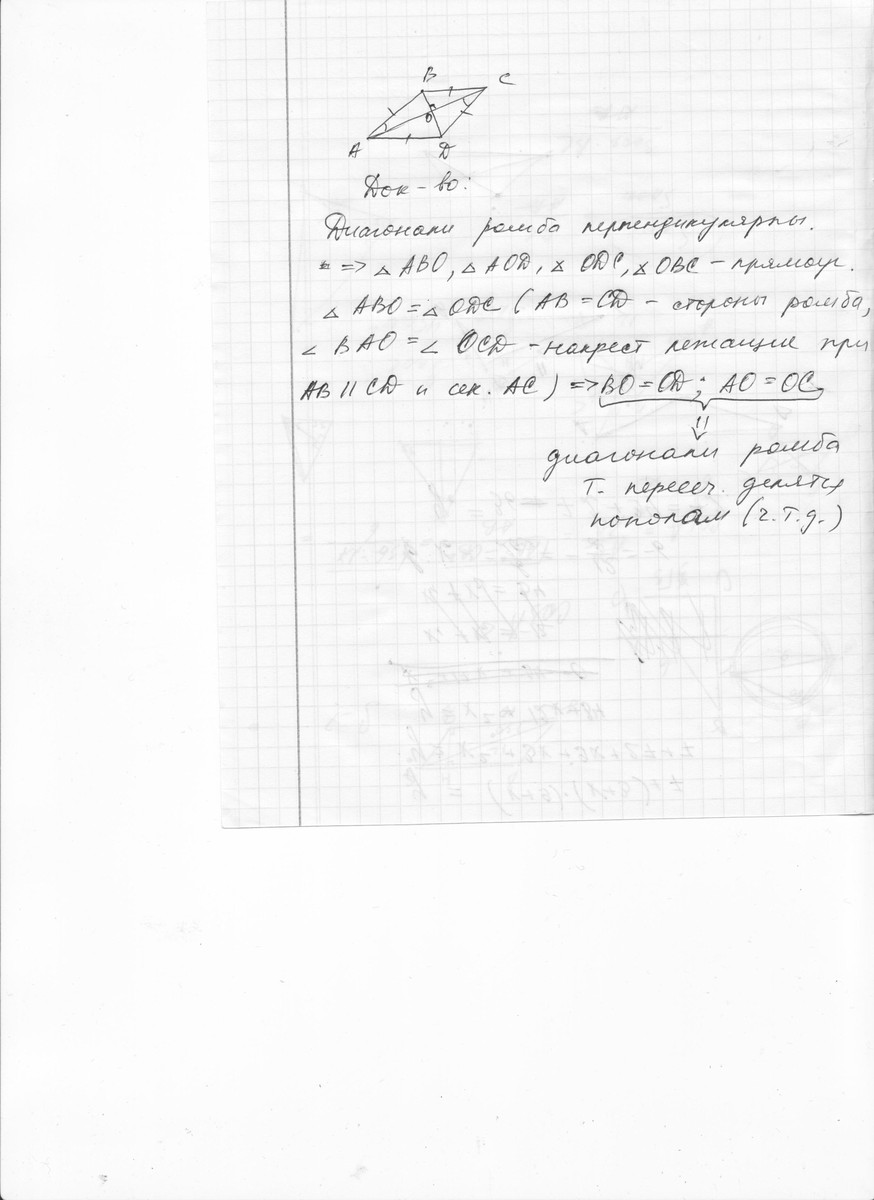 B C
O
A D
Док-во:
Диагонали ромба перпендикулярны.
=> △ ABO, △ AOD, △ ODC, △ OBC – прямоуг.
△ ABO = △ ODC (AB = CD – стороны ромба,
∠ BAO = ∠ OCD – накрест лежащие при
AB || CD и сек. AC) => BO = OD; AO = OC
⇓
диагонали ромба
т. пересеч. делятся
пополам (ч.т.д.)